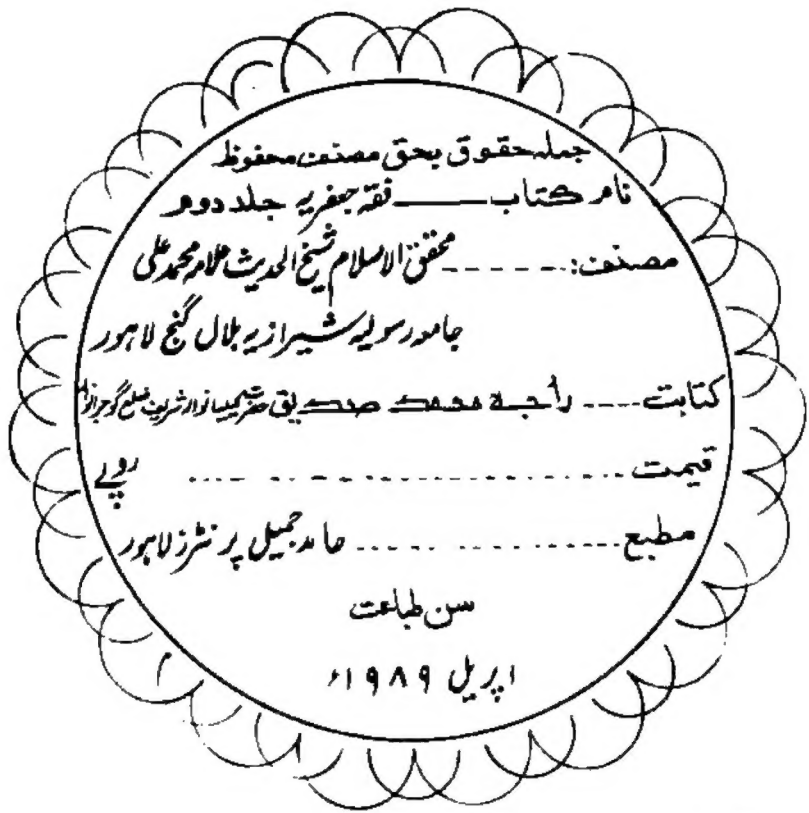 جملہ حقوق بحق مصنف محفوظ
نام کتاب ــــــ فقہ جعفریہ جلد دوم
مصنف: ------ محقق الاسلام شیخ الحدیث علامہ محمد علی
جامعہ رسولیہ شیرازیہ بلال گنج لاہور
کتابت ---- راجہ محمد صدیق حضرت کیلیانوالہ شریف ضلع گوجرانوالہ
قیمت .................... روپے
مطبع ................ حامد جمیل پرنٹرز لاہور
سن طباعت
اپریل ۱۹۸۹ء